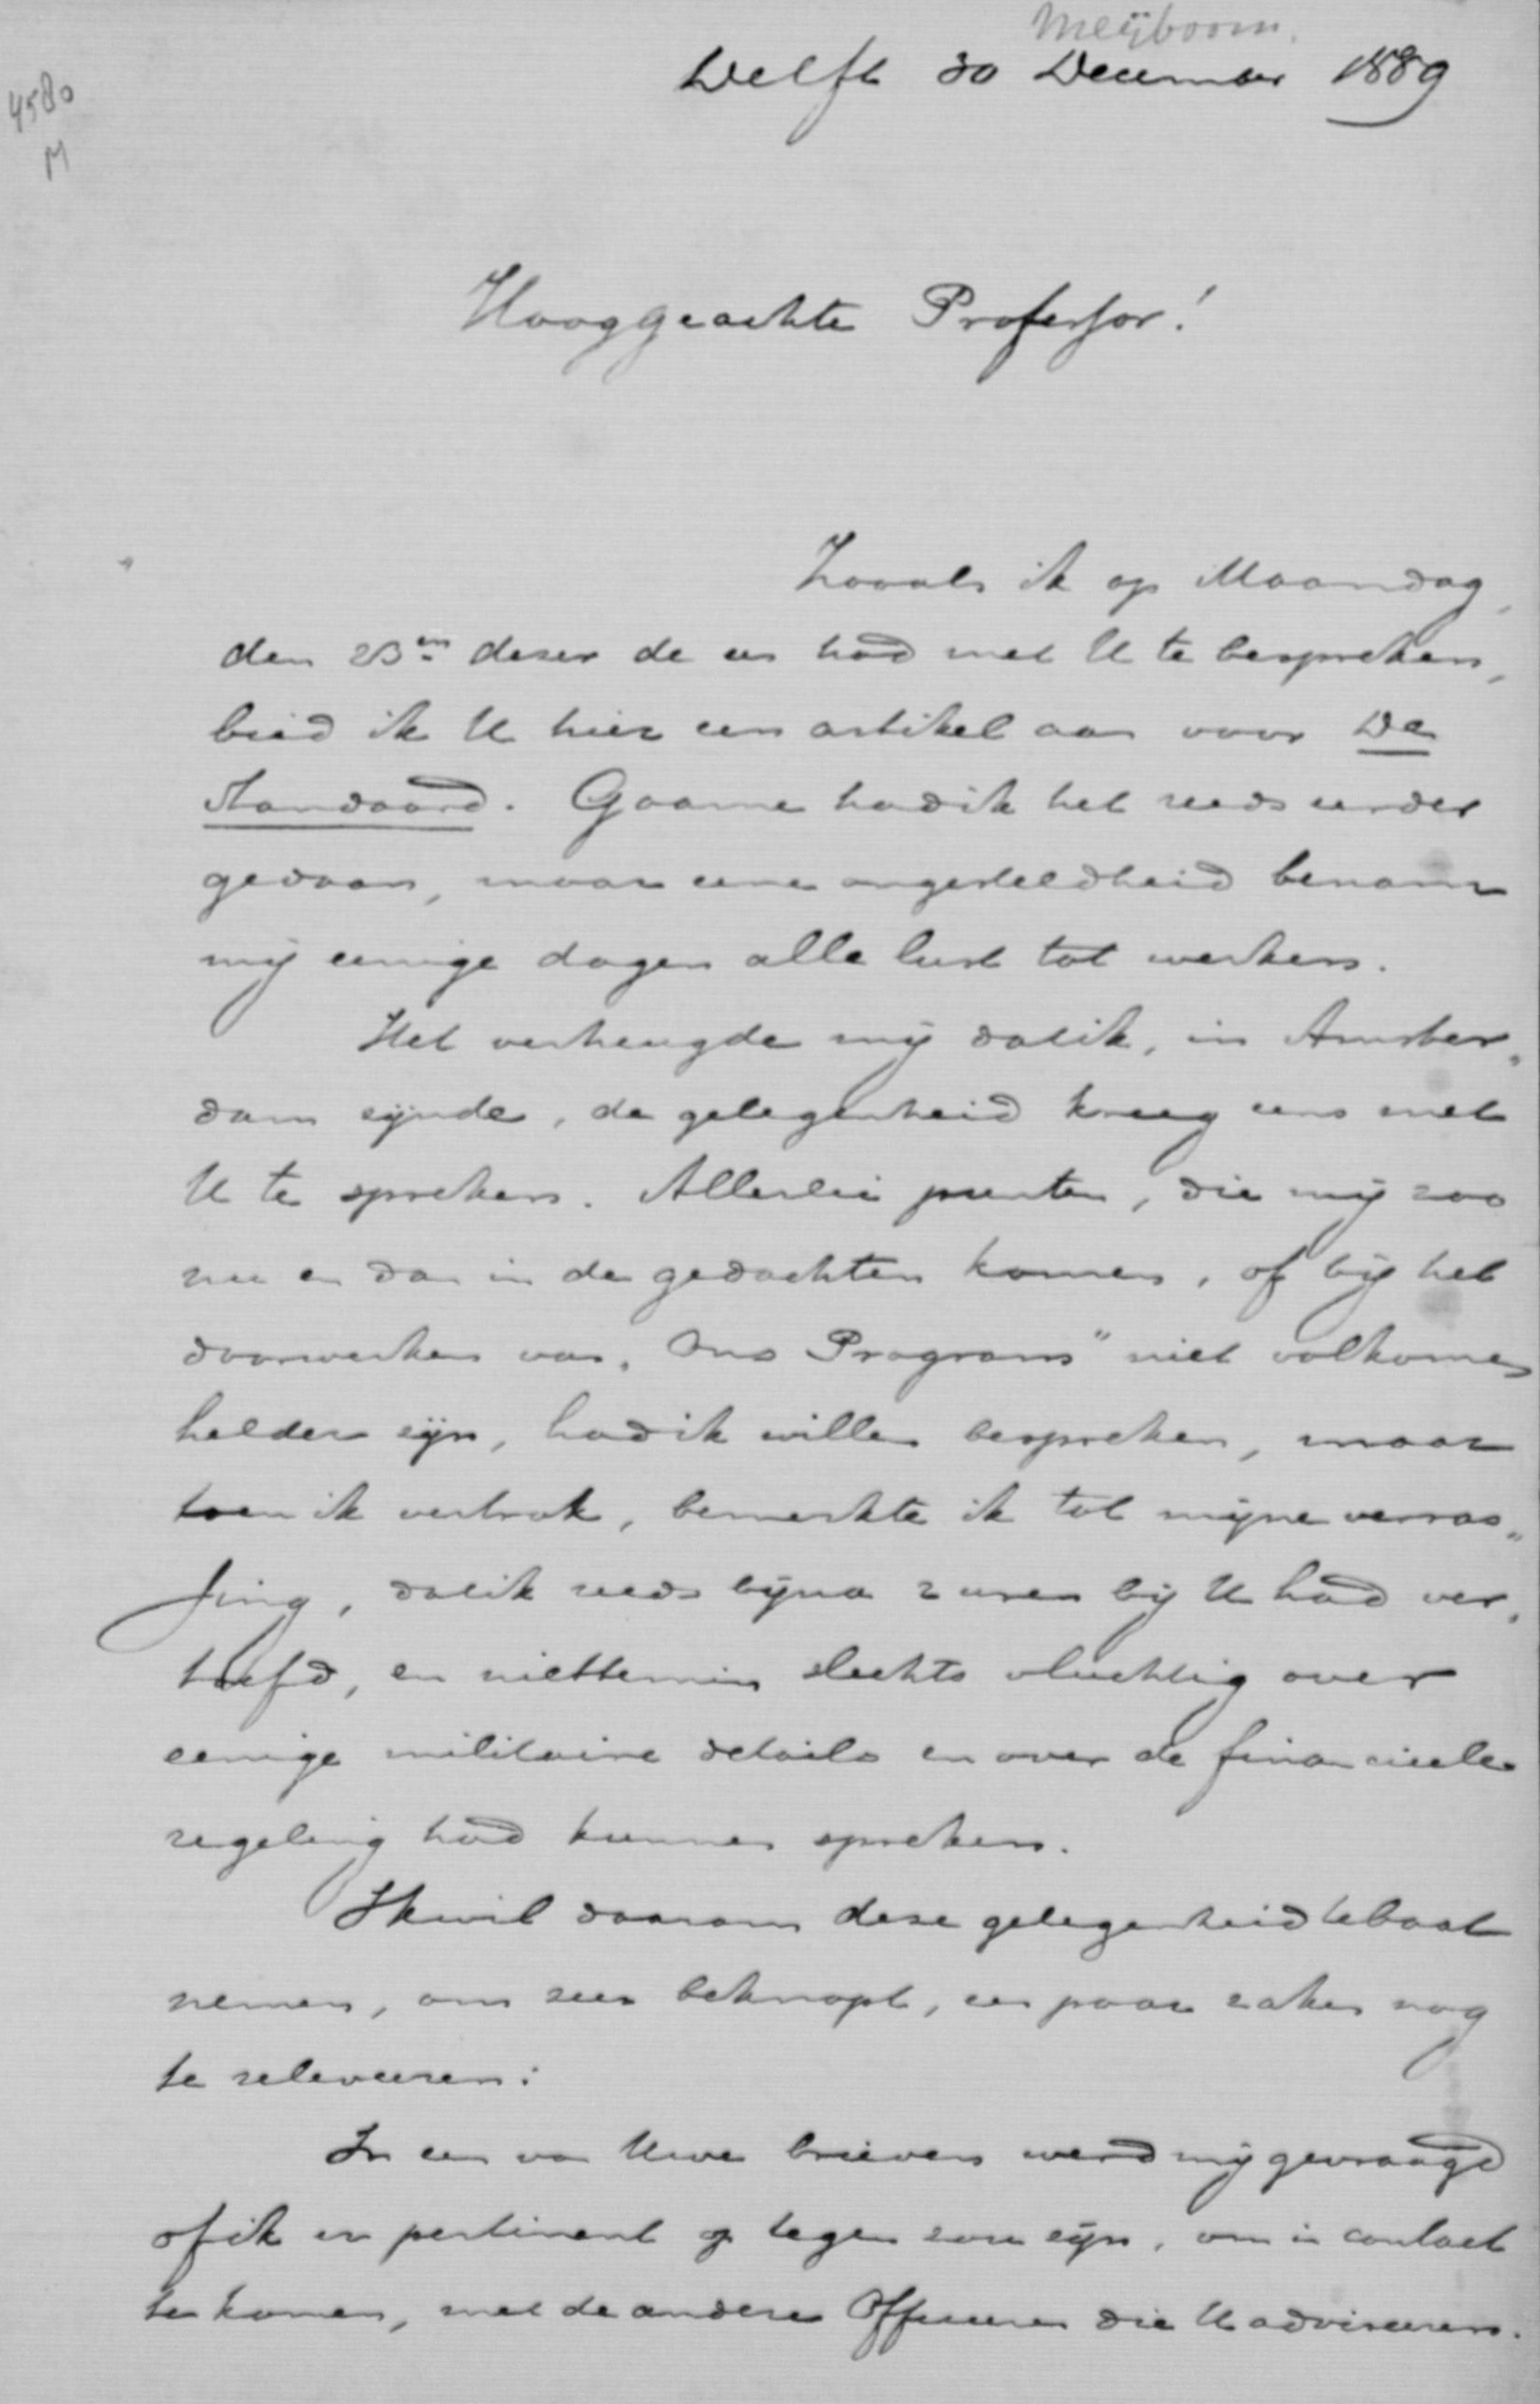 Meijboom.
Delft 30 December 1889
4580
M
Hooggeachte Professor!
Zooals ik op Maandag,
den 23en dezer de eer had met U te bespreken,
bied ik U hier een artikel aan voor De
Standaard. Gaarne had ik het reeds eerder
gedaan, maar eene ongesteldheid benam
mij eenige dagen alle lust tot werken.
Het verheugde mij dat ik, in Amster„
dam zijnde, de gelegenheid kreeg eens met
U te spreken. Allerlei punten, die mij zoo
nu en dan in de gedachten komen, of bij het
doorwerken van „Ons Program" niet volkomen
helder zijn, had ik willen bespreken, maar
toen ik vertrok, bemerkte ik tot mijne verras„
sing, dat ik reeds bijna 2 uren bij U had ver„
toefd, en niettemin slechts vluchtig over
eenige militaire details en over de financieele
regeling had kunnen spreken.
Ik wil daarom deze gelegenheid te baat
nemen, om zeer beknopt, een paar zaken nog
te releveeren:
In een van Uwe brieven werd mij gevraagd
of ik er pertinent op tegen zou zijn, om in contact
te komen, met de andere Officieren die U adviseeren.